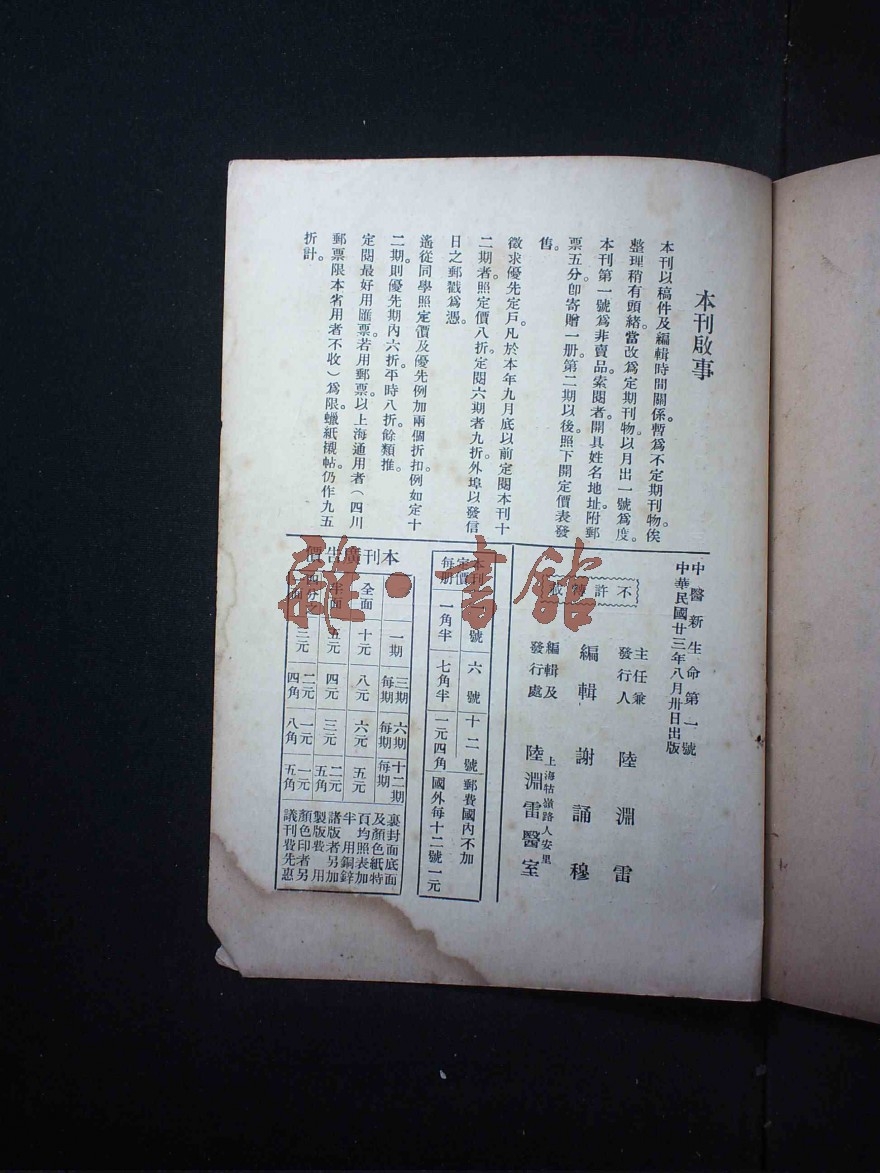 本刊啟事
本刊以稿件及編輯時間關係。暫爲不定期刊物。俟
整理稍有頭緒。當改爲定期刊物。以月出一號爲度。
本刊第一號爲非賣品。索閱者。開具姓名地址。附郵
票五分。卽寄贈一册。第二期以後。照下開定價表發
售。
徵求優先定戶。凡於本年九月底以前定閱本刊十
二期者。照定價八折。定閱六期者九折。外埠以發信
日之郵戳爲憑。
遙從同學。照定價及優先例加兩個折扣。例如定十
二期。則優先期內六折。平時八折。餘類推。
定閱最好用匯票。若用郵票。以上海通用者(四川
郵票限本省用者不收)爲限。蠟紙襯帖。仍作九五
折計。
中醫新生命第一號
中華民國廿三年八月卅日出版
主任兼
發行人 陸淵雷
編輯 謝誦穆
編輯及
發行處
上海牯嶺路人安里
陸淵雷醫室
不許轉載
本刊定價
每册 一角半
六號 七角半
十二號 一元四角
郵費國內不加
國外每十二號一元
本刊廣告價
一期 三期每期 六期每期 十二期每期
全面 十元 八元 六元 五元
半面 五元 四元 三元 二元五角
四分之 三元 二元四角 一元八角 一元五角
裏封面底面
及顏色紙特
頁均照表加
半用銅鋅
諸版者另加
製版費用
顏色印者另
議刊費先惠
雜·書館